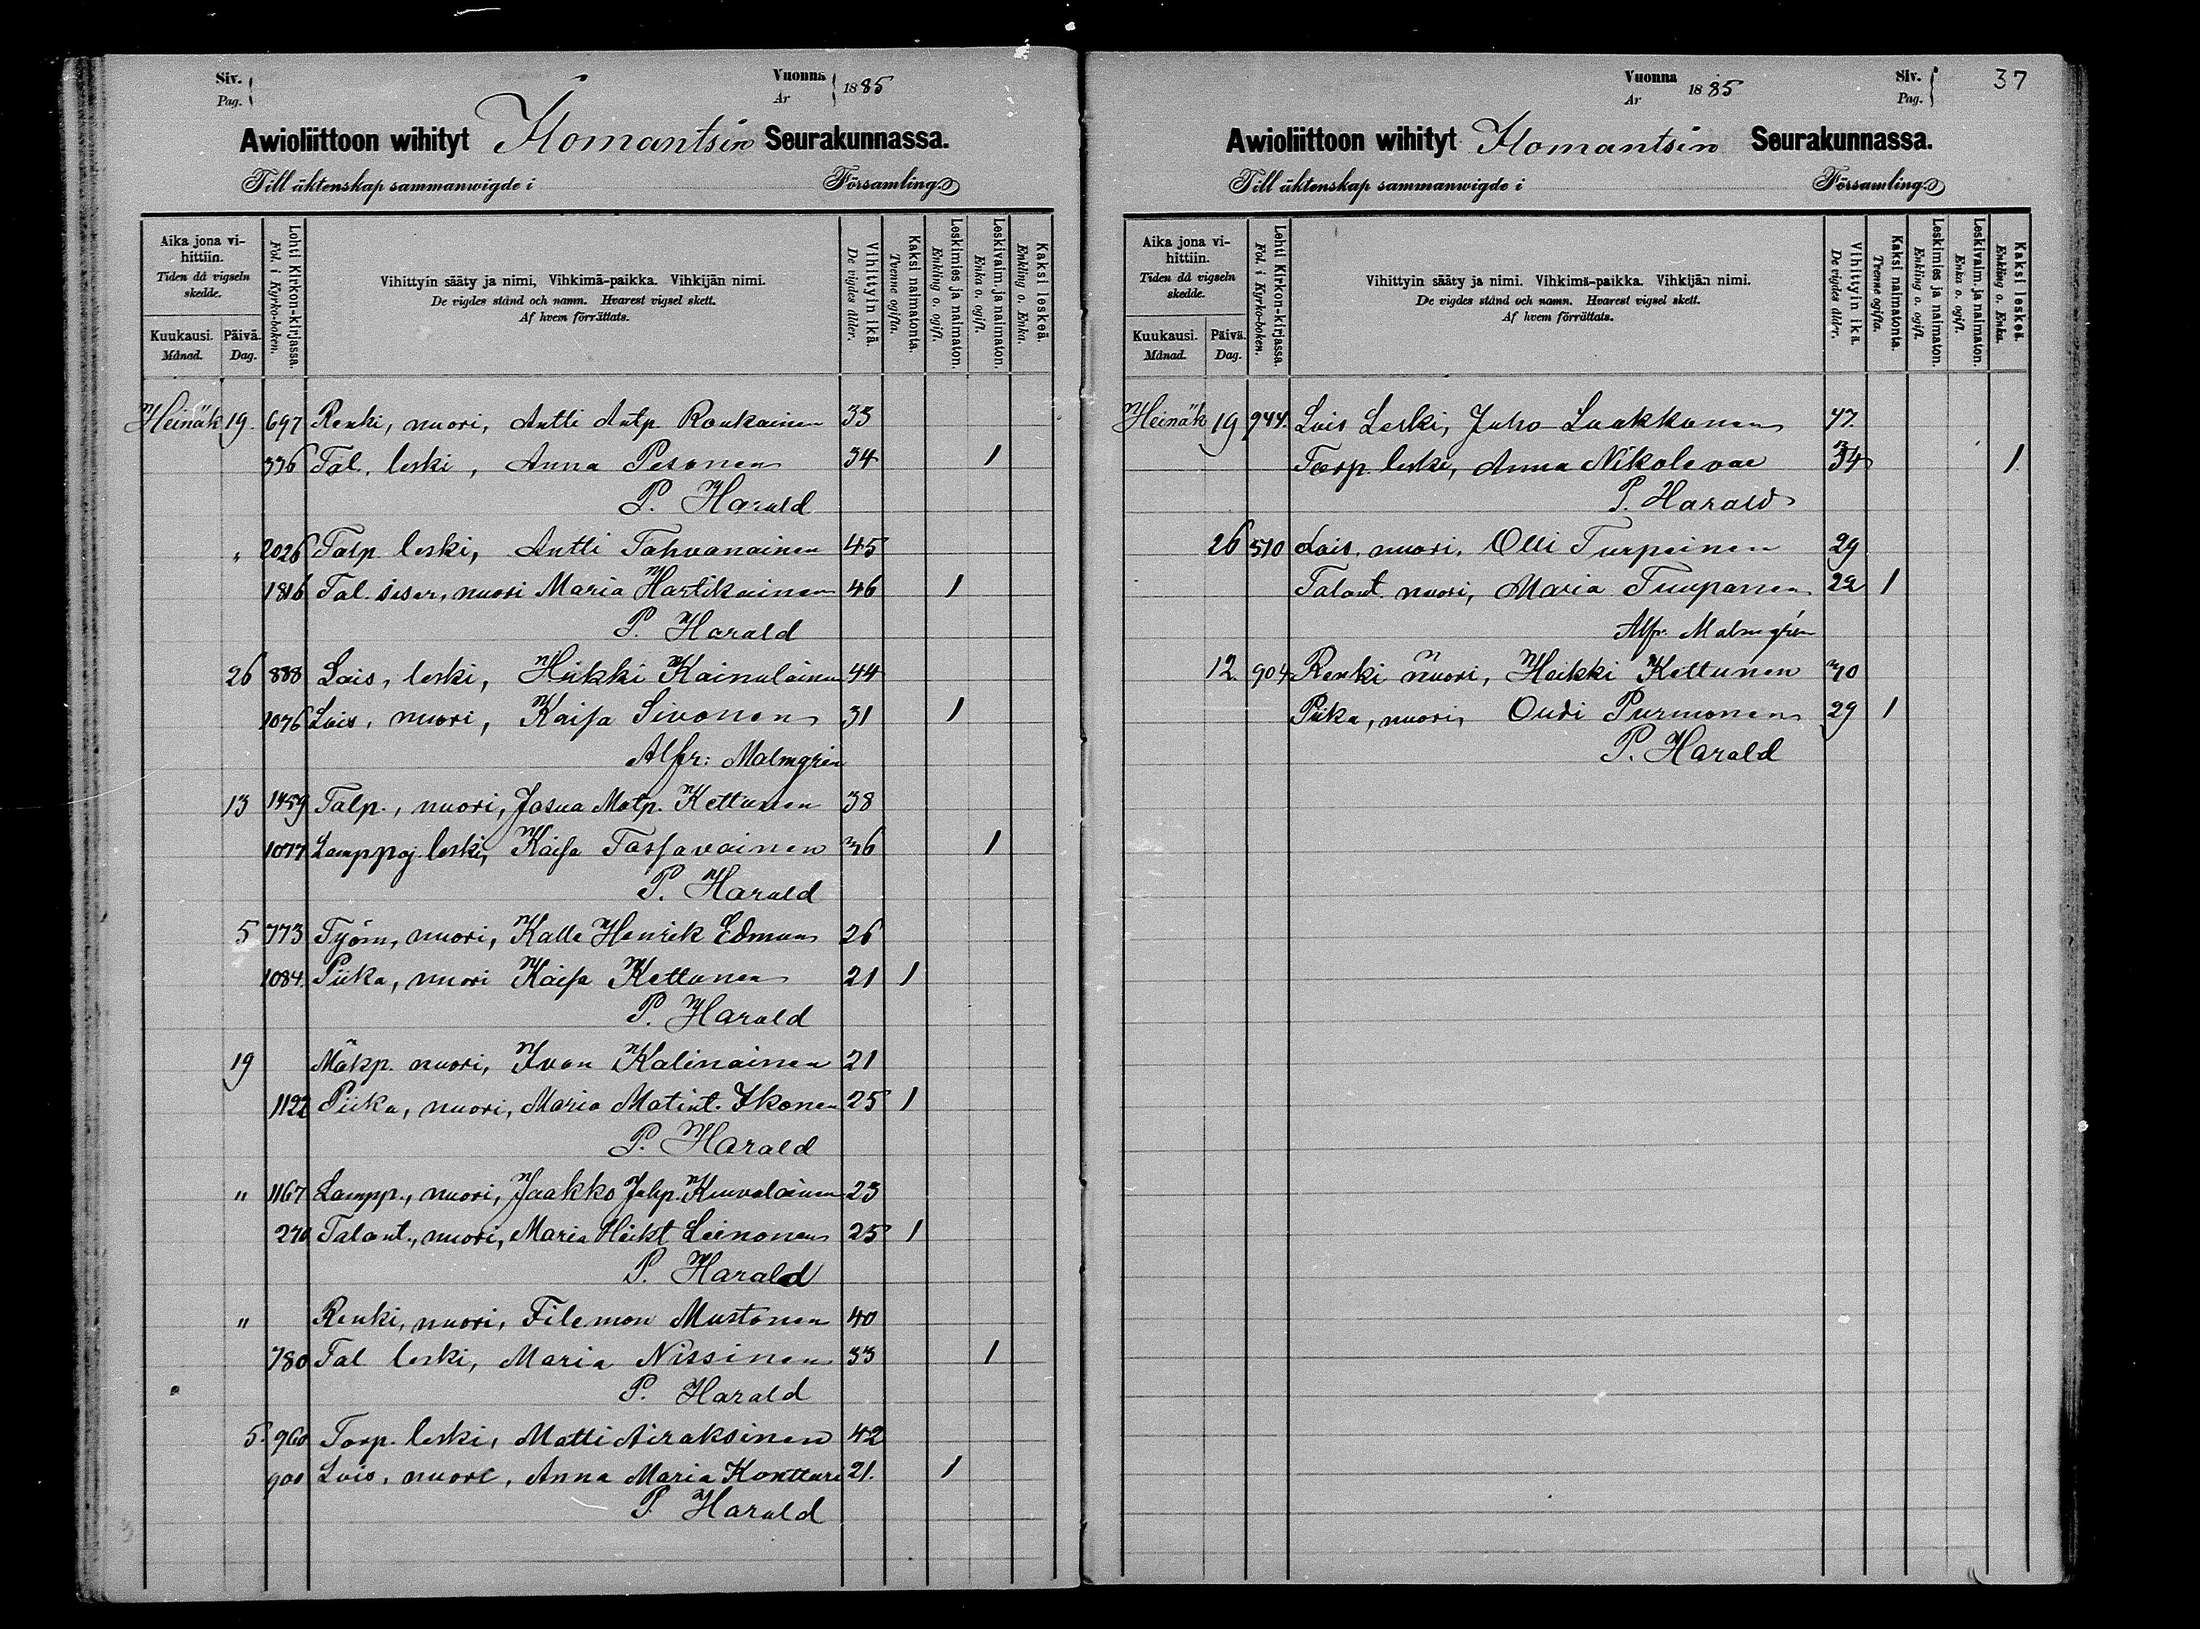 Siv.
Pag.
Vuonna
År
1885
Awioliittoon wihityt Ilomantsin Seurakunnassa.
Till äktenskap sammanwigde i Församling.
Aika jona vihittiin.
Tiden då vigseln skedde.
Kuukausi.
Månad.
Päivä.
Dag.
Lehti Kirkon-kirjassa.
Fol. i Kyrko-boken.
Vihittyin sääty ja nimi, Vihkimä-paikka. Vihkijän nimi.
De vigdes stånd och namn. Hvarest vigsel skett.
Af hvem förrättats.
Vihittyin ikä.
De vigdes ålder.
Kaksi naimatonta.
Tvenne ogifta.
Leskimies ja naimaton.
Enkling o. ogift.
Leskivaim. ja naimaton.
Enka o. ogift.
Kaksi leskeä.
Enkling o. Enka.
Heinäk 19. 697 Renki, nuori, Antti Antp. Roukainen 33
336 Tal. leski, Anna Pesonen 34 1
P. Harald
" 2026 Talp leski, Antti Tahvanainen 45
1816 Tal. sisar, nuori Maria Hartikainen 46 1
P. Harald
26 888 Lois, leski, Heikki Kainulainen 44
1076 Lois, nuori, Kaisa Sivonen 31 1
Alfr: Malmgrén
13 1459 Talp., nuori, Josua Matp. Kettunen 38
1077 Lamppoj. leski, Kaisa Tarjavainen 36 1
P. Harald
5 773 Työm, nuori, Kalle Henrik Edman 26
1084. Piika, nuori Kaisa Kettunen 21 1
P. Harald
19 Mäkp. nuori, Ivan Kalinainen 21
1122 Piika, nuori, Maria Matint. Ikonen 25 1
P. Harald
" 1167 Lampp., nuori, Jaakko Juhp. Kuuvalainen 23
270 Talont., nuori, Maria Heikt Leinonen 25 1
P. Harald
" Renki, nuori, Filemon Mustonen 40
780 Tal leski, Maria Nissinen 33 1
P. Harald
5. 960 Torp. leski, Matti Airaksinen 42
900 Lois, nuori, Anna Maria Kontturi 21. 1
P. Harald
Vuonna
År
1885
Siv.
Pag.
37
Awioliittoon wihityt Ilomantsin Seurakunnassa.
Till äktenskap sammanwigde i Församling.
Aika jona vihittiin.
Tiden då vigseln skedde.
Kuukausi.
Månad.
Päivä.
Dag.
Lehti Kirkon-kirjassa.
Fol. i Kyrko-boken.
Vihittyin sääty ja nimi. Vihkimä-paikka. Vihkijän nimi.
De vigdes stånd och namn. Hvarest vigsel skett.
Af hvem förrättats.
Vihittyin ikä.
De vigdes ålder.
Kaksi naimatonta.
Tvenne ogifta.
Leskimies ja naimaton.
Enkling o. ogift.
Leskivaim. ja naimaton.
Enka o. ogift.
Kaksi leskeä.
Enkling o. Enka.
Heinäk 19 944. Lois Leski, Juho Laakkonen 47.
Torp leski, Anna Nikolevae 34 1
P. Harald
26 510 Lois, nuori, Olli Turpeinen 29
Talont. nuori, Maria Tuupanen 22 1
Alfr. Malmgrén
12. 904 Renki nuori, Heikki Kettunen 40
Piika, nuori, Outi Purmonen 29 1
P. Harald